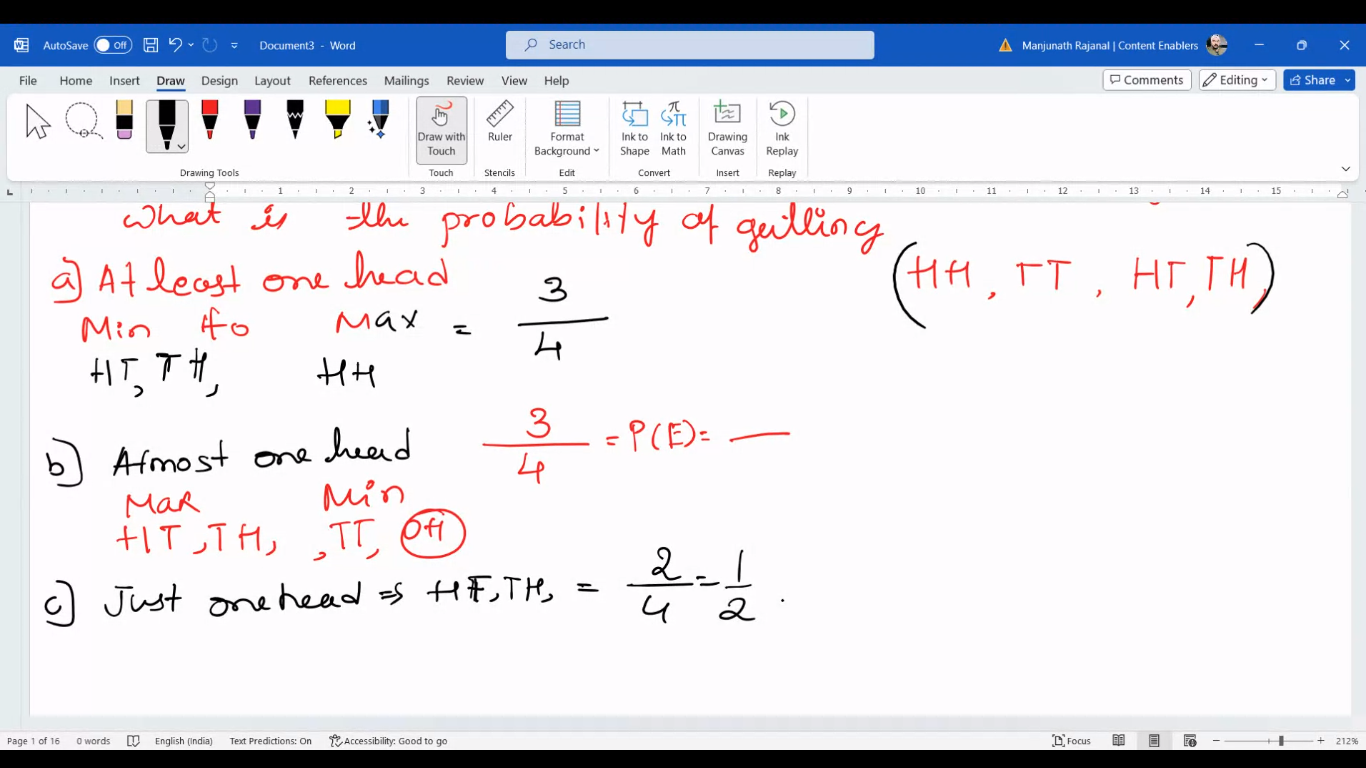 AutoSave Off Document3 - Word Search Manjunath Rajanal | Content Enablers
File Home Insert Draw Design Layout References Mailings Review View Help Comments Editing Share
Draw with Touch Ruler Format Background Ink to Shape Ink to Math Drawing Canvas Ink Replay
Drawing Tools Touch Stencils Edit Convert Insert Replay
1 2 3 4 5 6 7 8 9 10 11 12 13 14 15
What is the probability of getting
(HH, TT, HT, TH,)
a) At least one head
Min to Max = 3/4
HT, TH, HH
b) Atmost one head 3/4 = P(E) =
Max Min
HT, TH, , TT, 0H
c) Just one head ⇒ HT, TH, = 2/4 = 1/2 .
Page 1 of 16 0 words English (India) Text Predictions: On Accessibility: Good to go Focus 212%